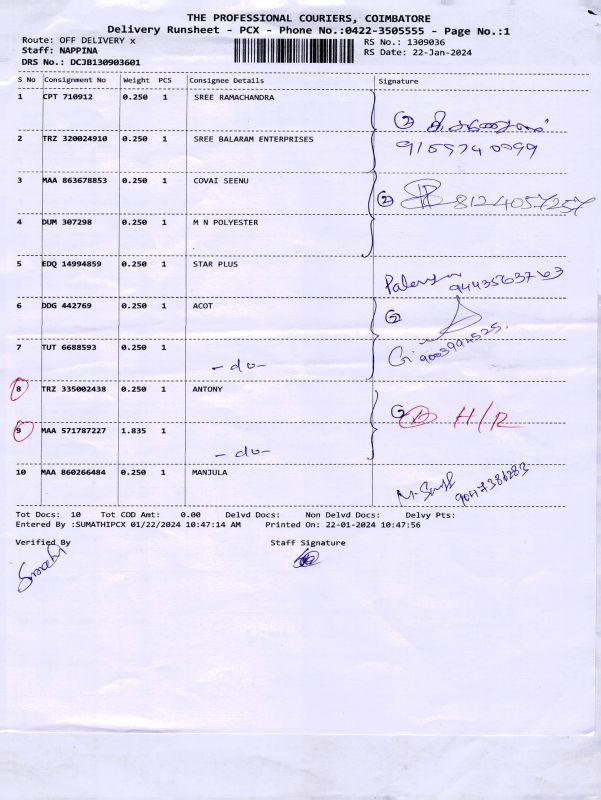 THE PROFESSIONAL COURIERS, COIMBATORE
Delivery Runsheet - PCX - Phone No.:0422-3505555 - Page No.:1
Route: OFF DELIVERY x RS No.: 1309036
Staff: NAPPINA RS Date: 22-Jan-2024
DRS No.: DCJB130903601
S No Consignment No Weight PCS Consignee Details Signature
1 CPT 710912 0.250 1 SREE RAMACHANDRA
②
2 TRZ 320024910 0.250 1 SREE BALARAM ENTERPRISES
3 MAA 863678853 0.250 1 COVAI SEENU
② 8124057257
4 DUM 307298 0.250 1 M N POLYESTER
5 EDQ 14994859 0.250 1 STAR PLUS
9443563763
6 DDG 442769 0.250 1 ACOT
②
7 TUT 6688593 0.250 1
- do -
8 TRZ 335002438 0.250 1 ANTONY
② H/R
9 MAA 571787227 1.835 1
- do -
10 MAA 860266484 0.250 1 MANJULA
Tot Docs: 10 Tot COD Amt: 0.00 Delvd Docs: Non Delvd Docs: Delvy Pts:
Entered By :SUMATHIPCX 01/22/2024 10:47:14 AM Printed On: 22-01-2024 10:47:56
Verified By Staff Signature